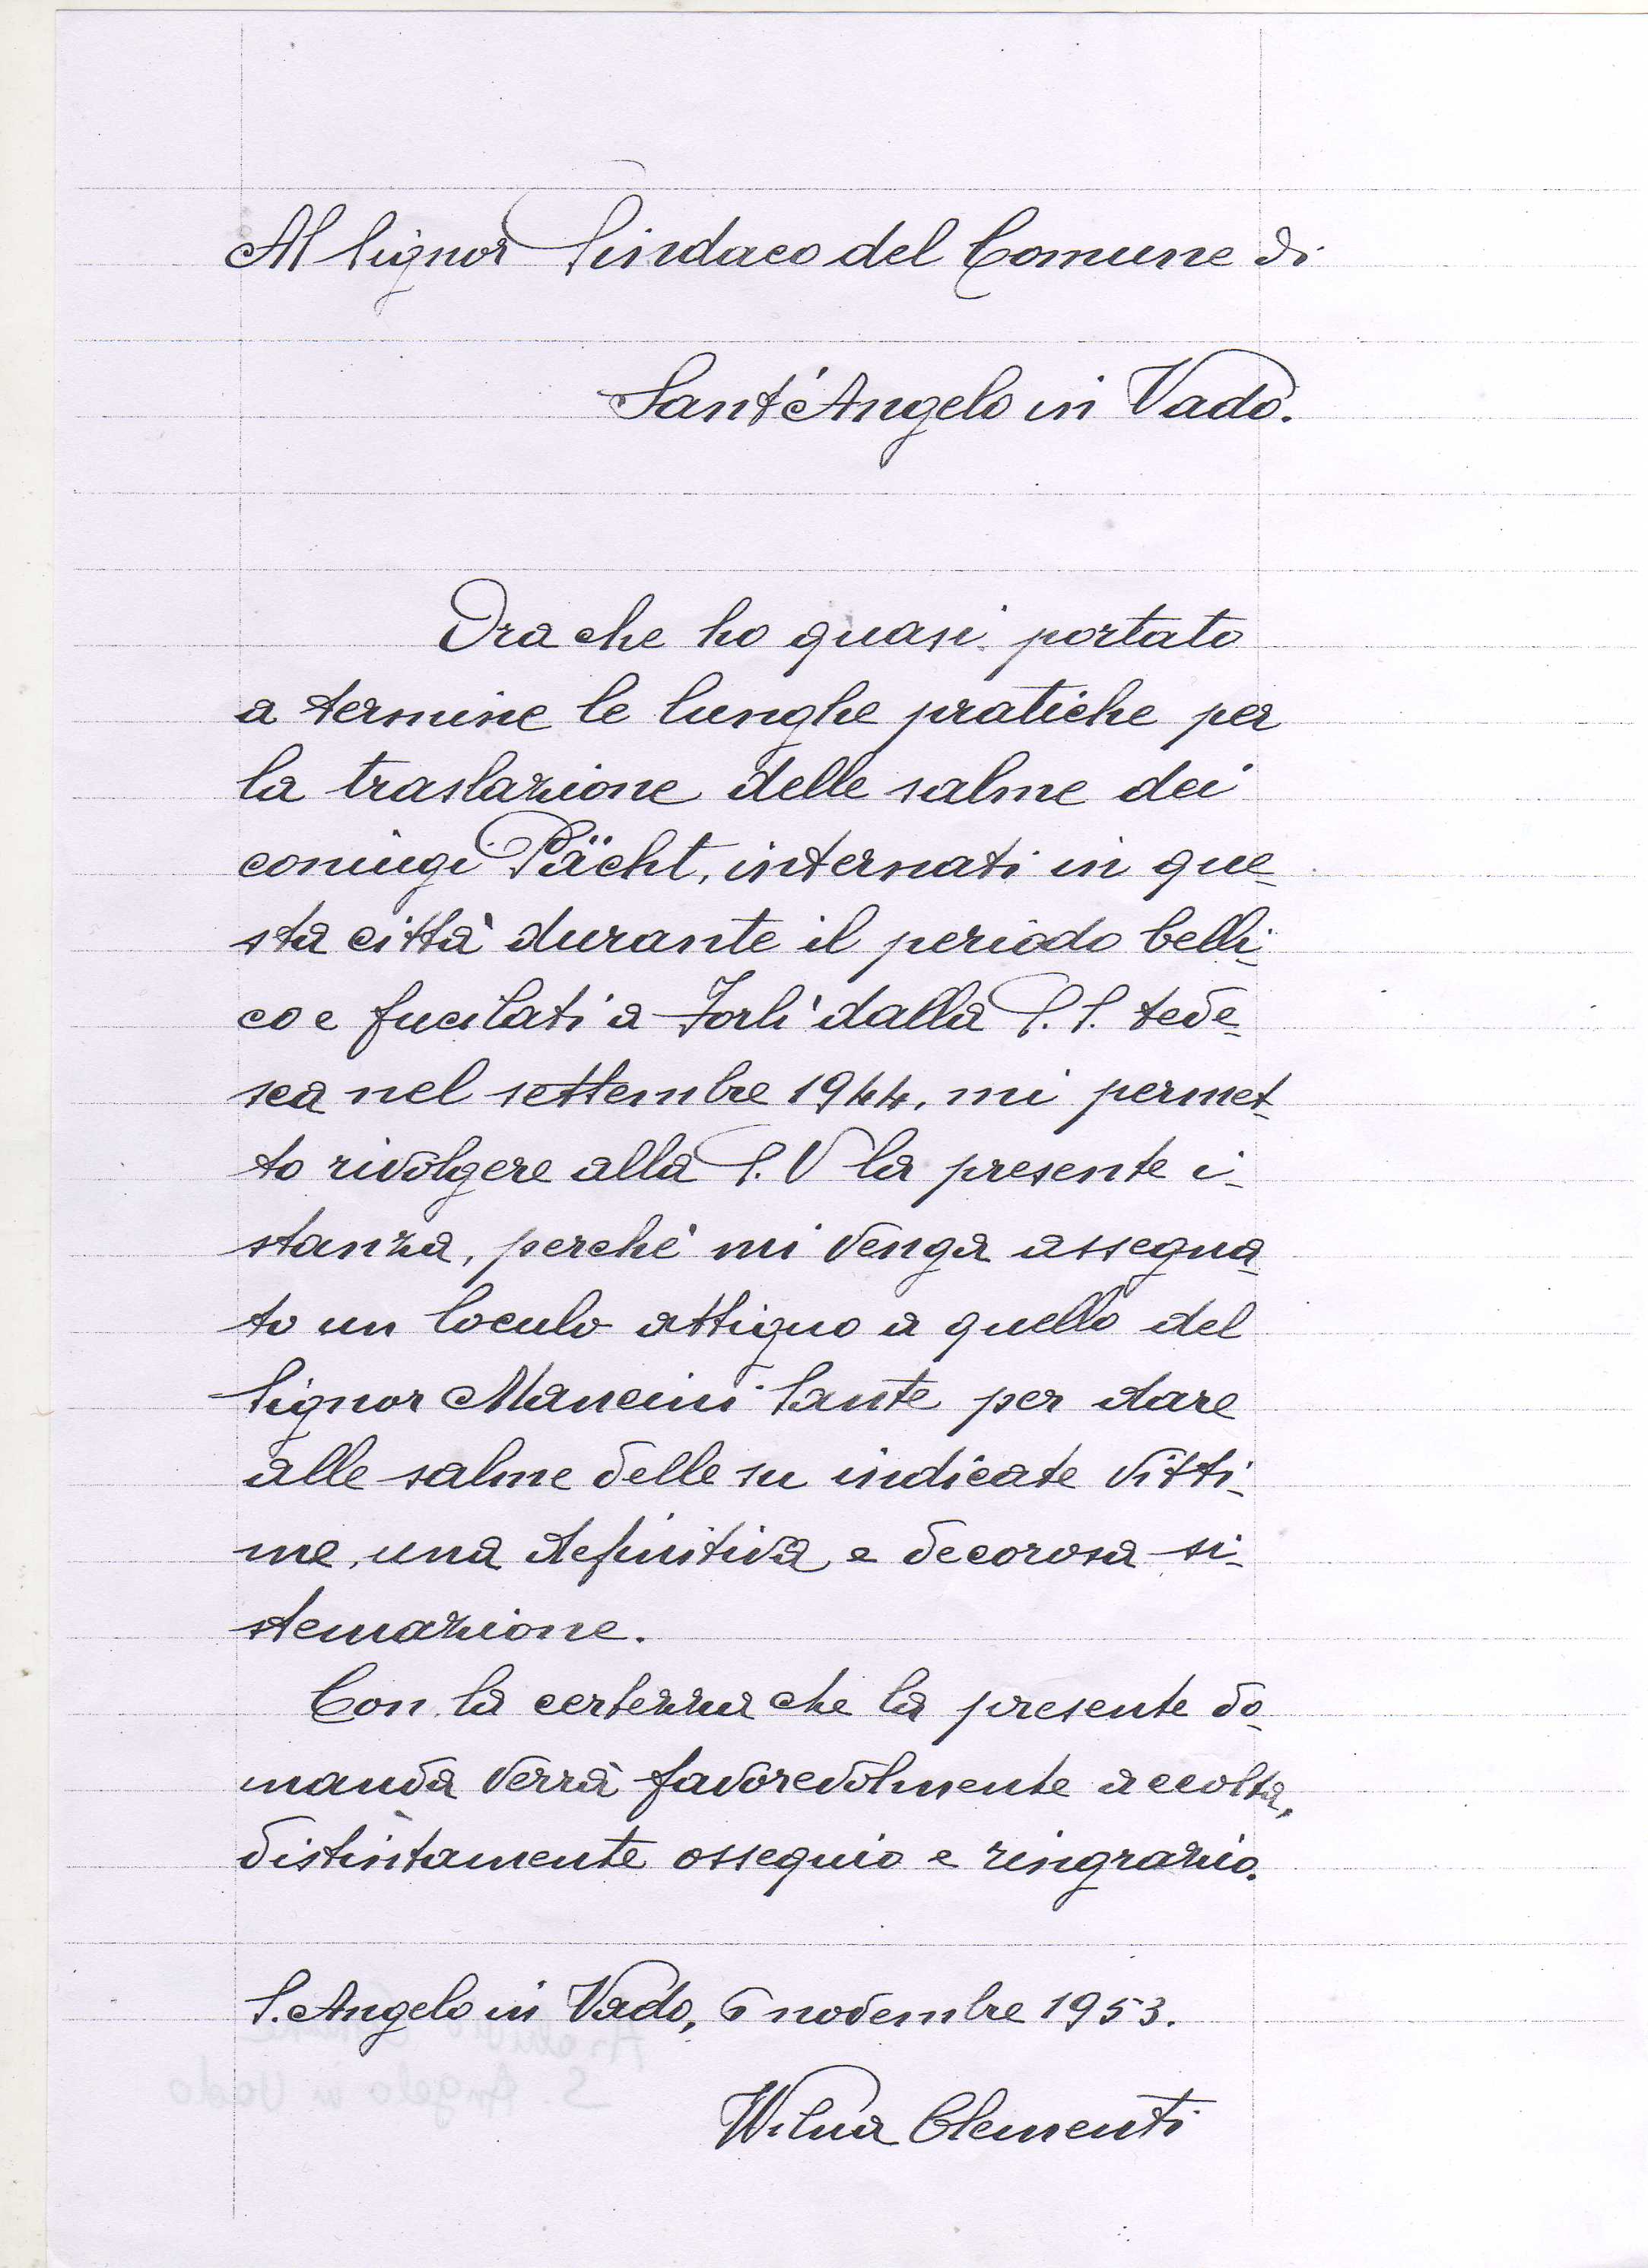 Al Signor Sindaco del Comune di
Sant'Angelo in Vado.
Ora che ho quasi portato
a termine le lunghe pratiche per
la traslazione delle salme dei
coniugi Pächt, internati in que-
sta città durante il periodo belli-
co e fucilati a Forlì dalla S.S. tede-
sca nel settembre 1944, mi permet-
to rivolgere alla S.V la presente i-
stanza, perché mi venga assegna-
to un loculo attiguo a quello del
Signor Mancini Sante per dare
alle salme delle su indicate vitti-
me, una definitiva e decorosa si-
stemazione.
Con la certezza che la presente do-
manda verrà favorevolmente accolta,
distintamente ossequio e ringrazio.
S. Angelo in Vado, 6 novembre 1953.
Wilna Clementi
S. Angelo in Vado